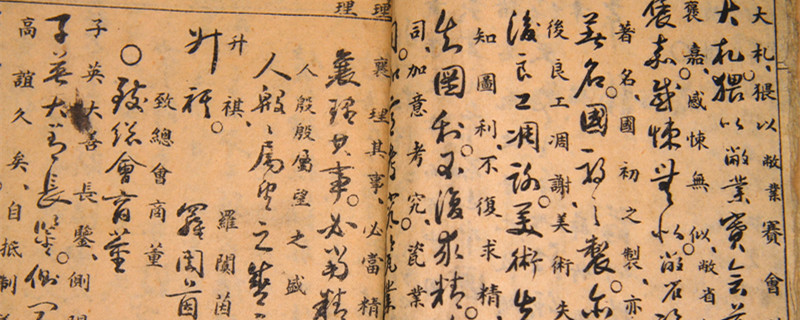 大札、猥以敝業賽會
大札。猥以敝業賽會
褒嘉、感悚無似、敝省
褒嘉感悚無似敝省
著名、國初之製、亦
著名。國初之製。亦
後良工凋謝、美術失
後良工凋謝美術失
知圖利、不復求精、
知圖利。不復求精
司、加意考究、瓷業
理
襄理其事、必當精
理
襄理其事。必當精
人殷殷屬望之盛
人殷殷屬望之盛
升祺、羅闓茵
升祺。羅闓茵
致總會商董
○致總會商董
子英大善長鑒、側聞
子英大善長鑒。側聞
高誼久矣、自抵制